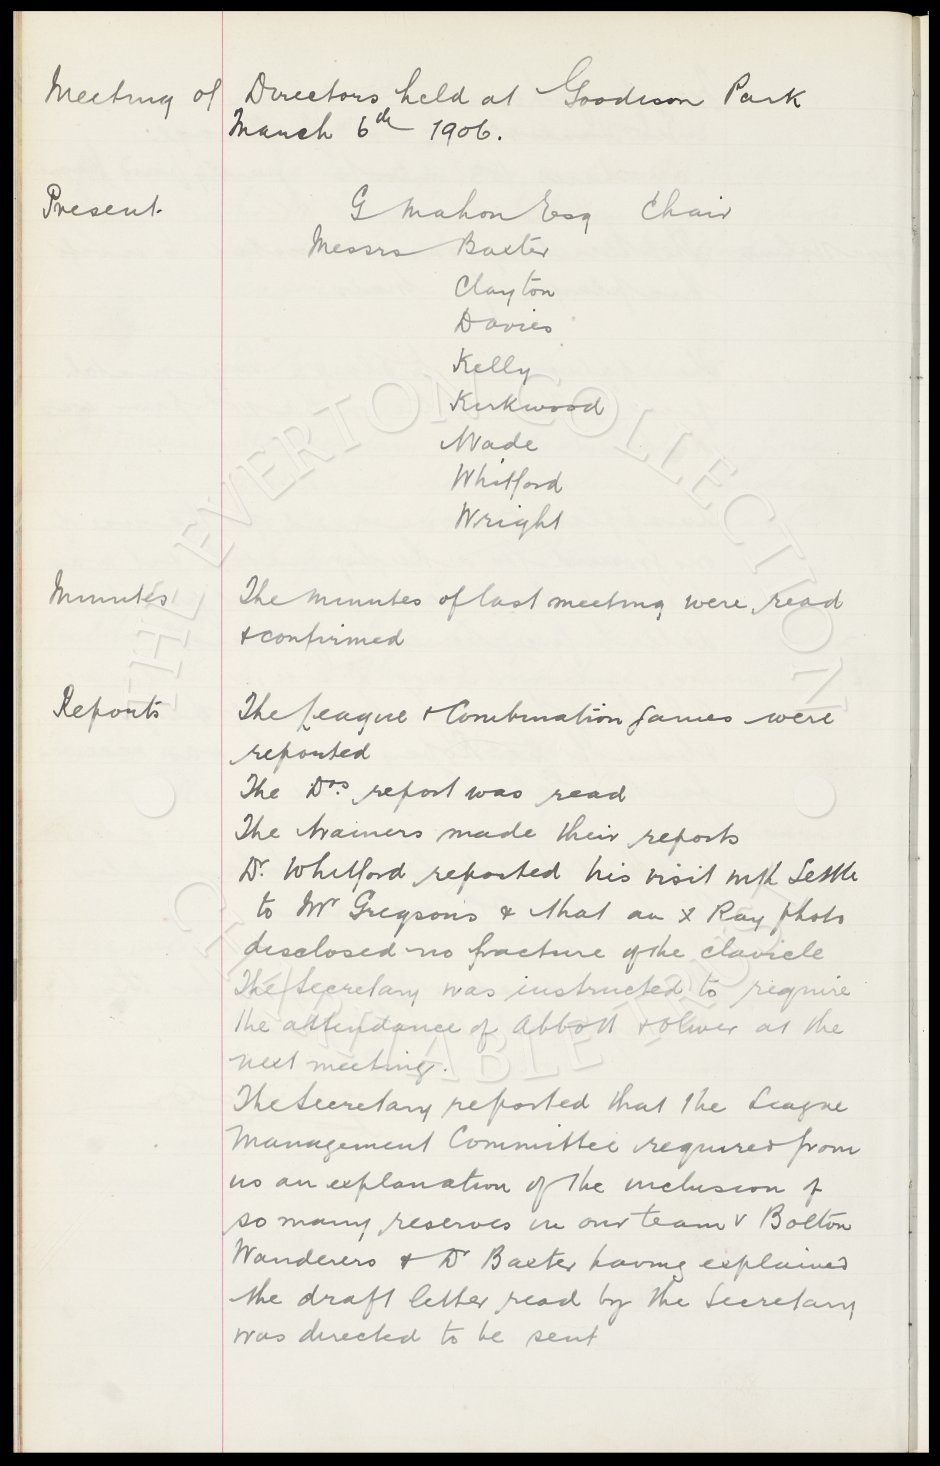 Meeting of Directors held at Goodison Park
March 6th 1906.
Present. G Mahon Esq Chair
Messrs Baxter
Clayton
Davies
Kelly
Kirkwood
Wade
Whitford
Wright
Minutes The minutes of last meeting were read
& confirmed
Reports The League & Combination games were
reported
The Drs report was read
The trainers made their reports
Dr. Whitford reported his visit with Settle
to Mr Gregsons & that an X Ray photo
disclosed no fracture of the clavicle
The Secretary was instructed to require
the attendance of Abbott & Oliver at the
next meeting.
The Secretary reported that the League
Management Committee required from
us an explanation of the inclusion of
so many reserves in our team v Bolton
Wanderers & Dr Baxter having explained
the draft letter read by the Secretary
was directed to be sent
THE EVERTON COLLECTION
CHARITABLE TRUST